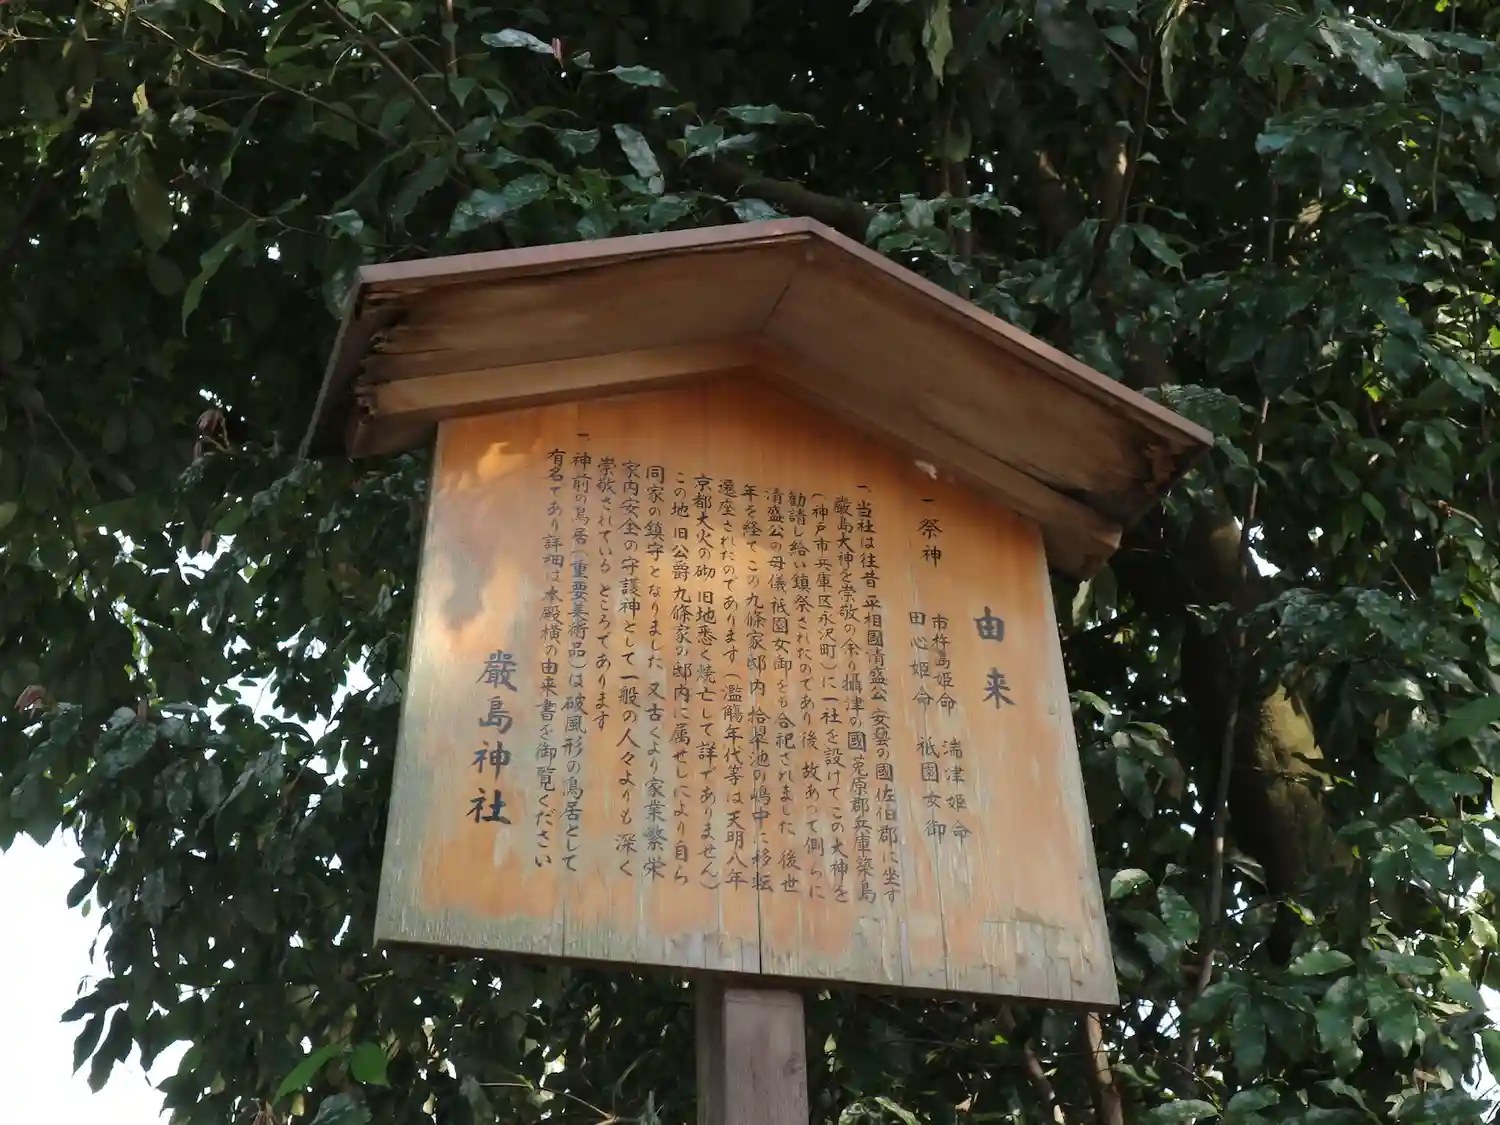 由来
一 祭神
市杵島姫命 湍津姫命
田心姫命 祇園女御
一、当社は往昔 平相國清盛公 安藝の國佐伯郡に坐す
嚴島大神を崇敬の余り攝津の國菟原郡兵庫築島
(神戸市兵庫区永沢町)に一社を設けてこの大神を
勧請し給い鎮祭されたのであり後 故あって側らに
清盛公の母儀祇園女御をも合祀されました 後世
年を経てこの九條家邸内 拾翠池の嶋中に移転
遷座されたのであります(濫觴年代等は天明八年
京都大火の砌 旧地悉く焼亡して詳でありません)
この地 旧公爵九條家の邸内に属せしにより自ら
同家の鎮守となりました 又古くより家業繁栄
家内安全の守護神として一般の人々よりも深く
崇敬されている ところであります
一、神前の鳥居(重要美術品)は破風形の鳥居として
有名であり詳細は本殿横の由来書を御覧ください
嚴島神社